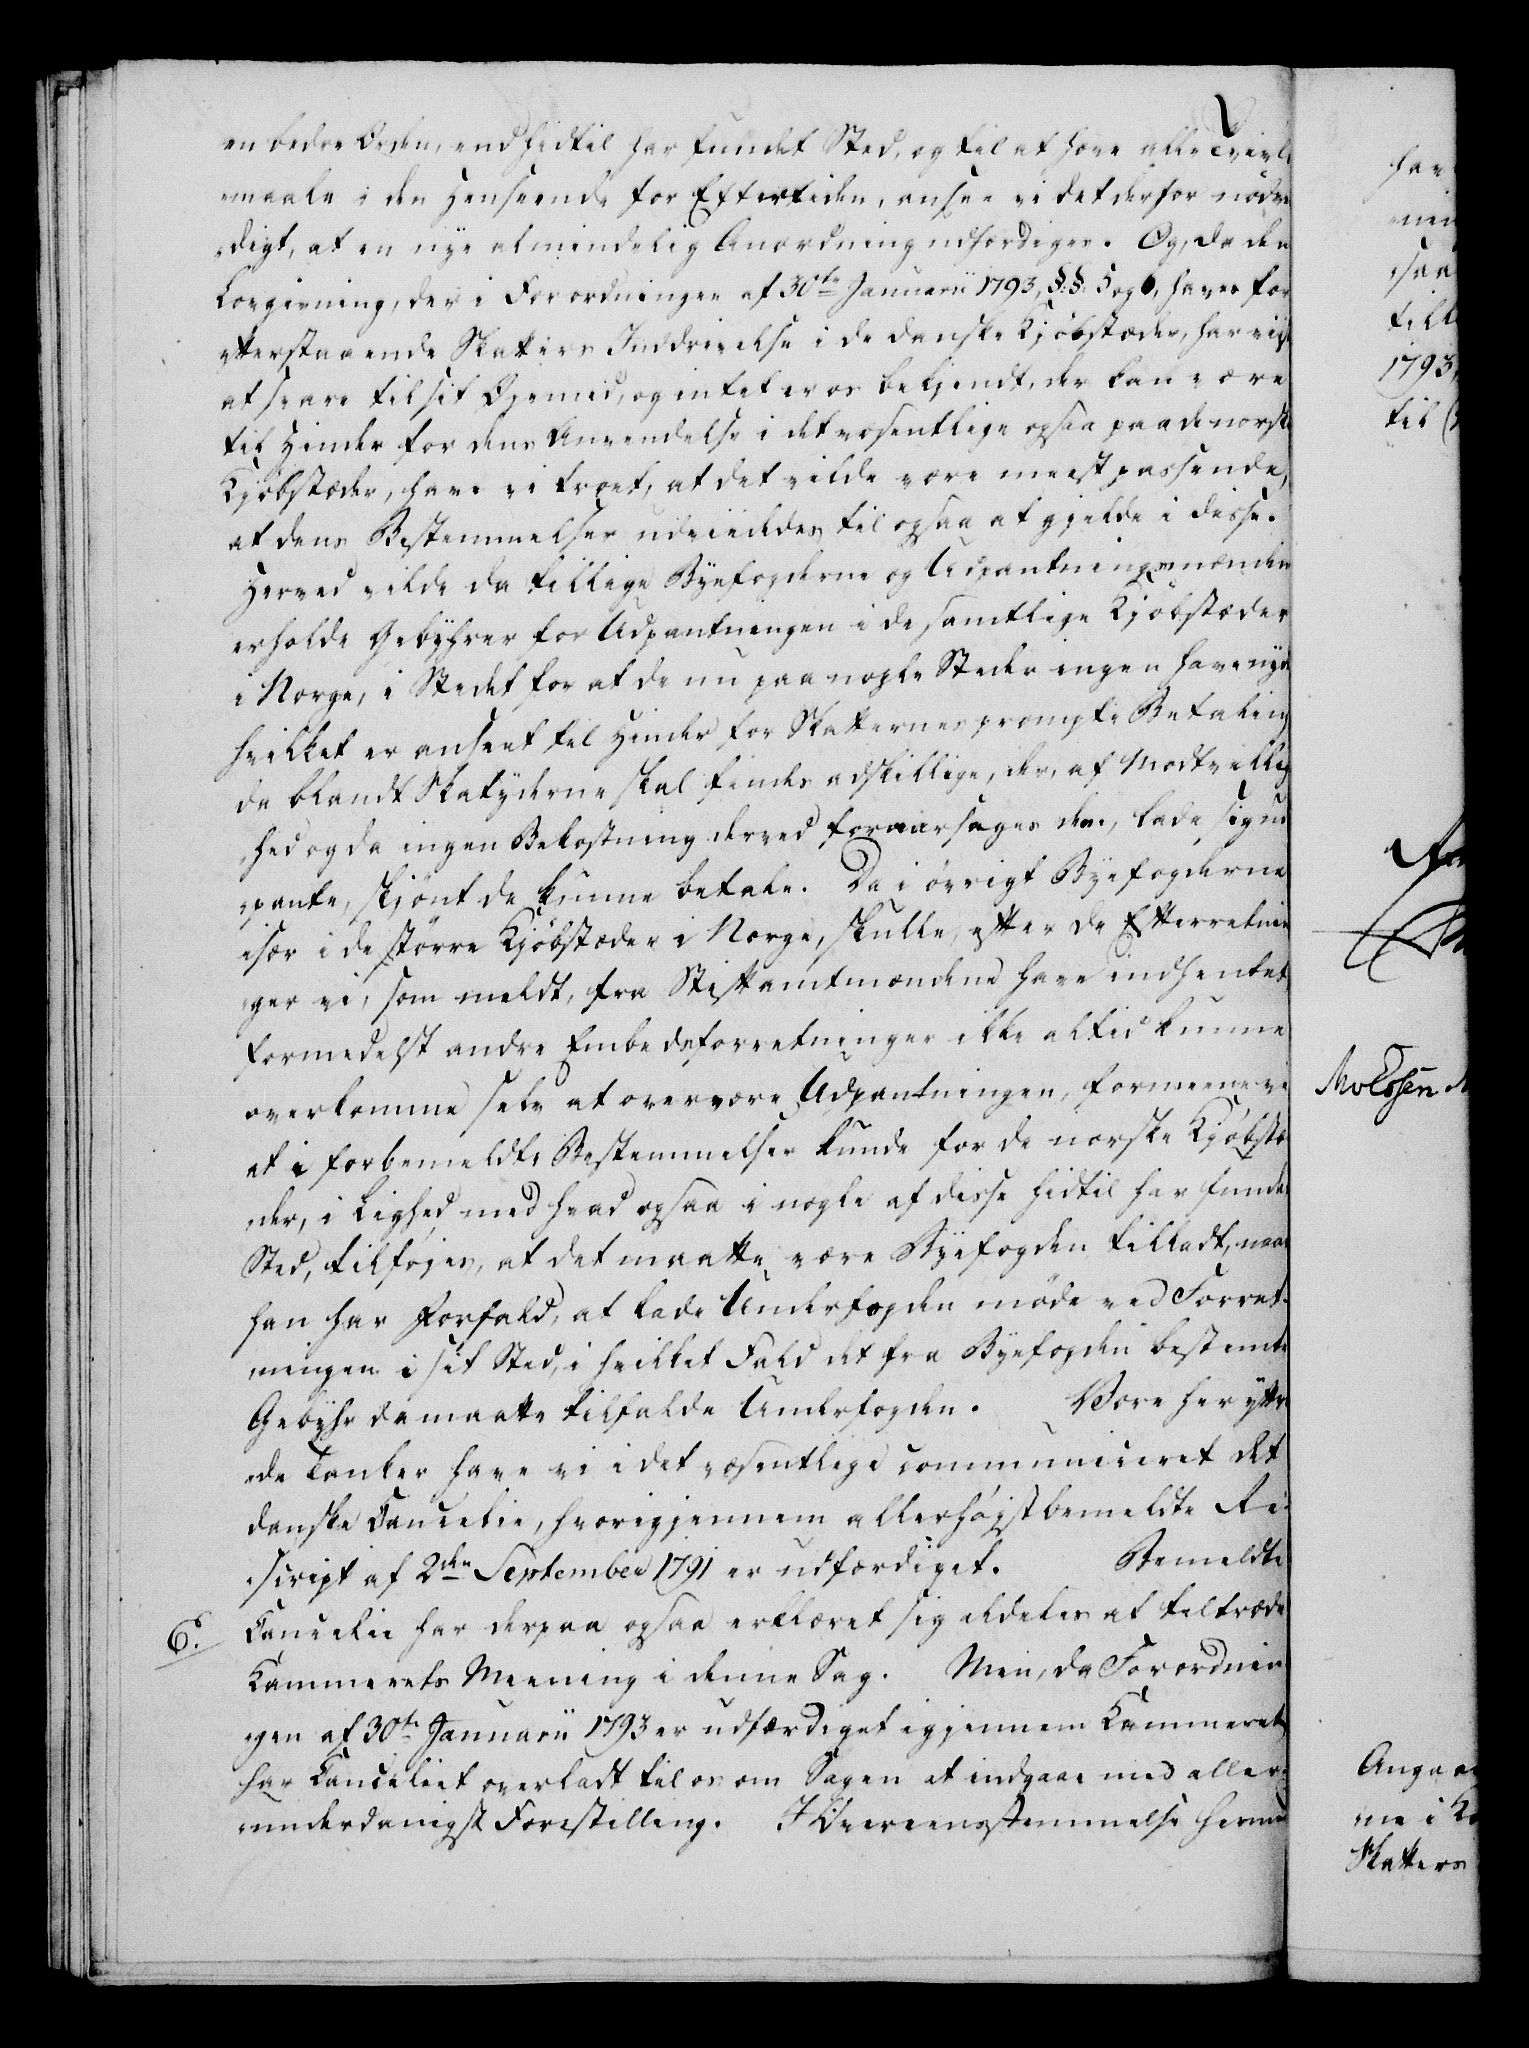 en bedre Orden, end hidtil har fundet Sted, og til at hæve alle Tvivls
maale i den Henseende for Eftertiden, ansee vi det derfor nødve
digt, at en nye almindelig Anordning udfærdiges. Og, da den
Lovgivning, der i Forordningen af 30te Januarii 1793, §.§. 5 og 6, haves for
efterstaaende Skatters Inddrivelse i de danske Kjøbstæder, har viist
at svare til sit Øjemed, og intet er os bekjendt, der kan være
til Hinder for dens Anvendelse i det væsentlige ogsaa paa de norske
Kjøbstæder, have vi troet, at det vilde være meest passende,
at dens Bestemmelser udviidedes til ogsaa at gjelde i disse.
Herved vilde da tillige Byefogderne og Udpantningsmændene
erholde Gebyhrer for Udpantningen i de samtlige Kjøbstæder
i Norge, i Stedet for at de nu paa nogle Steder ingen have nydt
hvilket er anseet til Hinder for Skatternes prompte Betaling
da blandt Skatyderne skal findes adskillige, der, af Modtvillig
hed og da ingen Bekostning derved foraarsages dem, lade sig ud
pante, skjønt de kunne betale. Da i øvrigt Byefogderne
især i de større Kjøbstæder i Norge, skulle, efter de Efterretnin
ger vi, som meldt, fra Stiftamtmændene have indhentet,
formedelst andre Embedsforretninger ikke altid kunne
overkomme selv at overvære Udpantningen, formeene vi
at i forbemeldte Bestemmelser kunde for de norske Kjøbstæ
der, i Lighed med hvad ogsaa i nogle af disse hidtil har fundet
Sted, tilføjes, at det maatte være Byefogden tilladt, naar
han har Forfald, at lade Underfogden møde ved Forret
ningen i sit Sted, i hvilket Fald det fra Byefogden bestemte
Gebyhr da maatte tilfalde Underfogden. Vore her yttre
de Tanker have vi i det væsentlige communiceret det
danske Cancelie, hvorigjennem allerhøjstbemeldte Re
script af 2den September 1791 er udfærdiget. Bemeldte
6. Cancelie har derpaa ogsaa erklæret sig aldeles at tiltræde
Kammerets Meening i denne Sag. Men, da Forordnin
gen af 30te Januarii 1793 er udfærdiget igjennem Kammeret,
har Canceliet overladt til os om Sagen at indgaae med aller
underdanigst Forestilling. I Overeensstemmelse herme
har
saa
till
1793,
til
Angaa
ne i Kø
Skatters